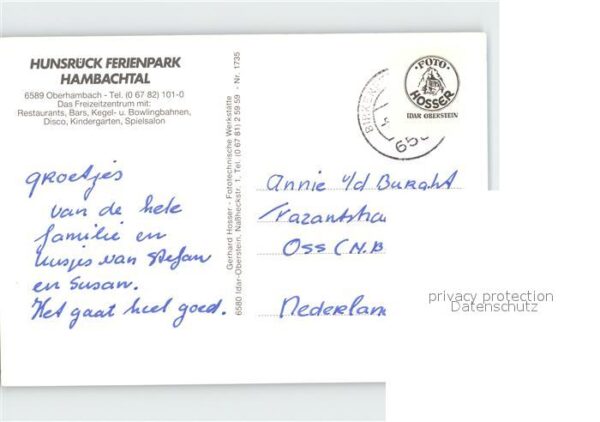 HUNSRÜCK FERIENPARK
HAMBACHTAL
6589 Oberhambach - Tel. (0 67 82) 101-0
Das Freizeitzentrum mit:
Restaurants, Bars, Kegel- u. Bowlingbahnen,
Disco, Kindergarten, Spielsalon
groetjes
van de hele
familie en
kusjes van Stefan
en Susan.
Het gaat heel goed.
Gerhard Hosser - Fototechnische Werkstätte
6580 Idar-Oberstein, Nallheckstr. 1, Tel. (0 67 81) 2 59 59 - Nr. 1735
FOTO
HOSSER
IDAR OBERSTEIN
Annie v/d Burght
Oss (N.B
Nederlan
privacy protection
Datenschutz